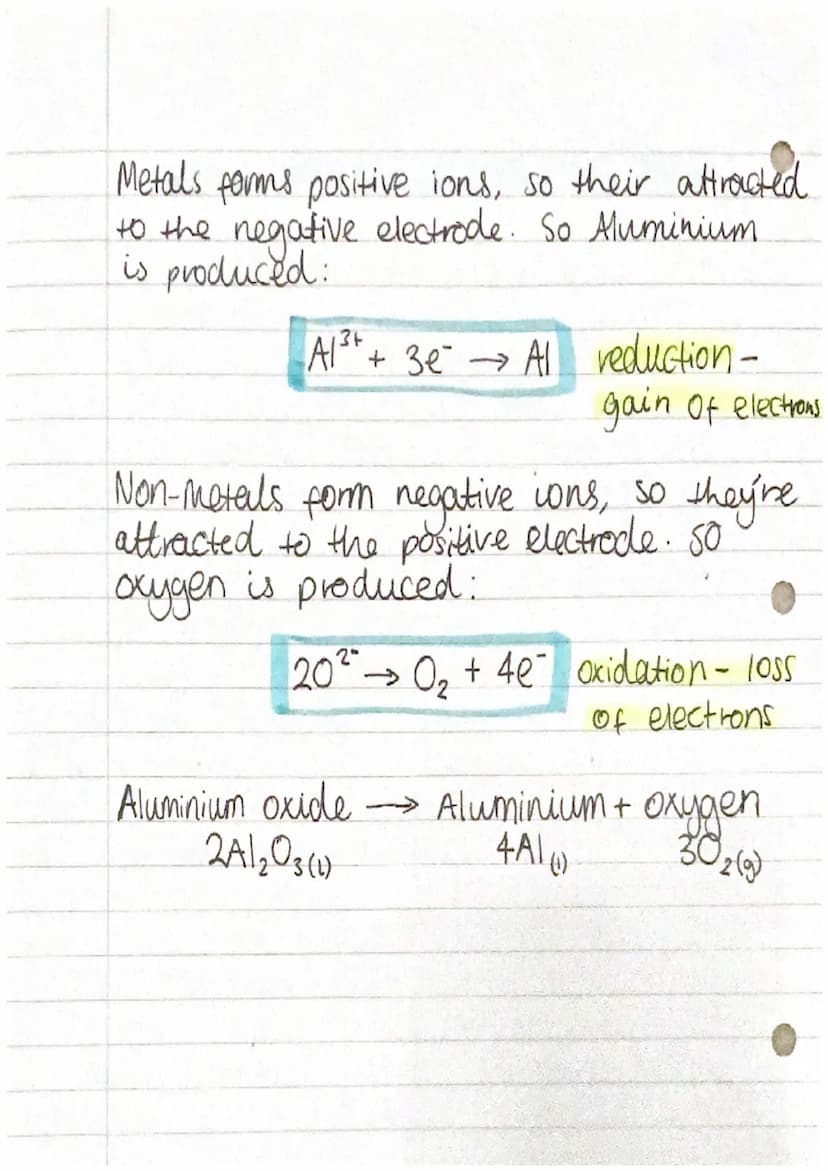 Metals forms positive ions, so their attracted
to the negative electrode. So Aluminium
is produced:
Al³⁺ + 3e⁻ → Al reduction -
gain of electrons
Non-Metals form negative ions, so they're
attracted to the positive electrode. SO
oxygen is produced:
2O²⁻ → O₂ + 4e⁻ oxidation - loss
of electrons
Aluminium oxide → Aluminium + oxygen
2Al₂O₃(l) 4Al(l) 3O₂(g)